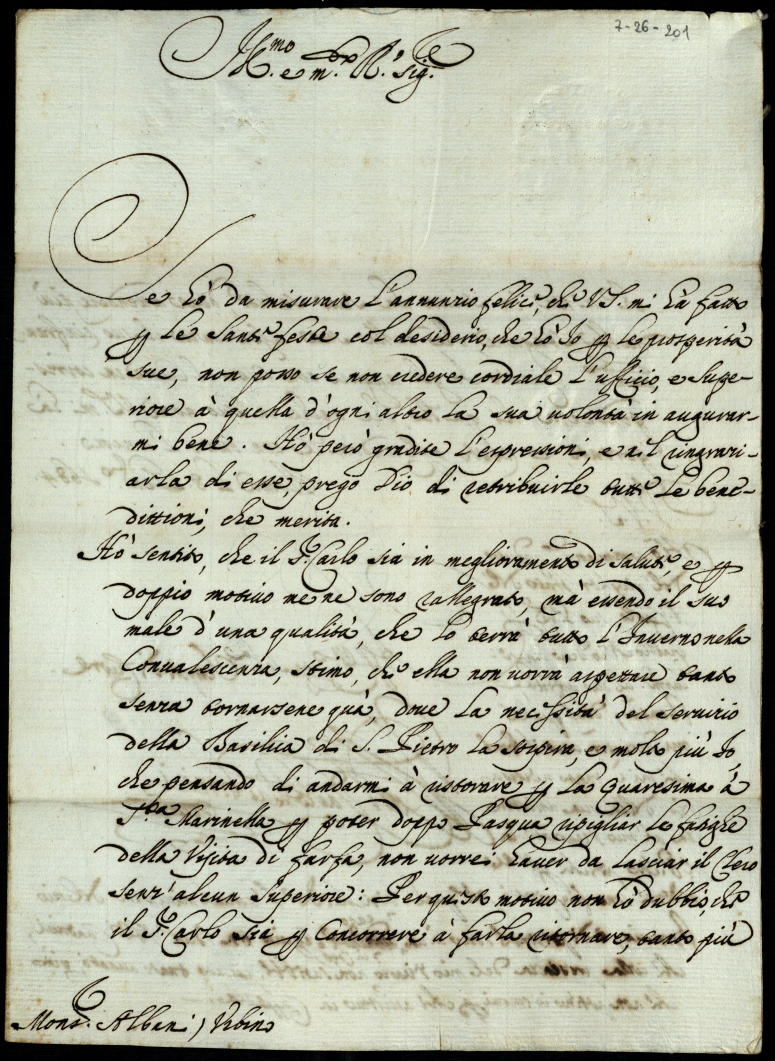 7-26-201
Ill.mo e m.to R.do Sig.re
Se hò da misurare l'annunzio felice, che VS. mi hà fatto
per le Sante feste col desiderio, che hò Io per le prosperità
sue, non posso se non credere cordiale l'ufficio, e supe-
riore à quella d'ogni altro la sua volontà in augurar-
mi bene. Hò però gradite l'espressioni, e nel ringrazi-
arla di esse, prego Dio di retribuirle tutte le bene-
dittioni, che merita.
Hò sentito, che il S.r Carlo sia in miglioramento di salute, e per
doppio motivo me ne sono rallegrato, mà essendo il suo
male d'una qualità, che lo terrà tutto l'Inverno nella
Convalescenza, stimo, che ella non vorrà aspettare tanto
senza tornarsene quà, dove la necessità del servizio
della Basilica di S. Pietro la stipira, e molto più Io,
che pensando di andarmi à ristorare per la Quaresima à
S.ta Marinella per poter doppo Pasqua ripigliar le fatighe
della Visita di Farfa, non vorrei haver da lasciar il Clero
senz'alcun Superiore: Per questo motivo non hò dubbio, che
il S.r Carlo sia per Concorrere à farla ritornare, tanto più
Mons.re Albani / Urbino